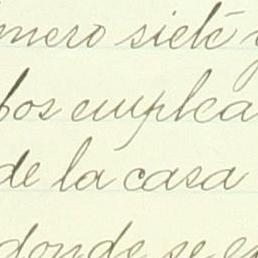 mero siete y
los emplea
de la casa
donde se en